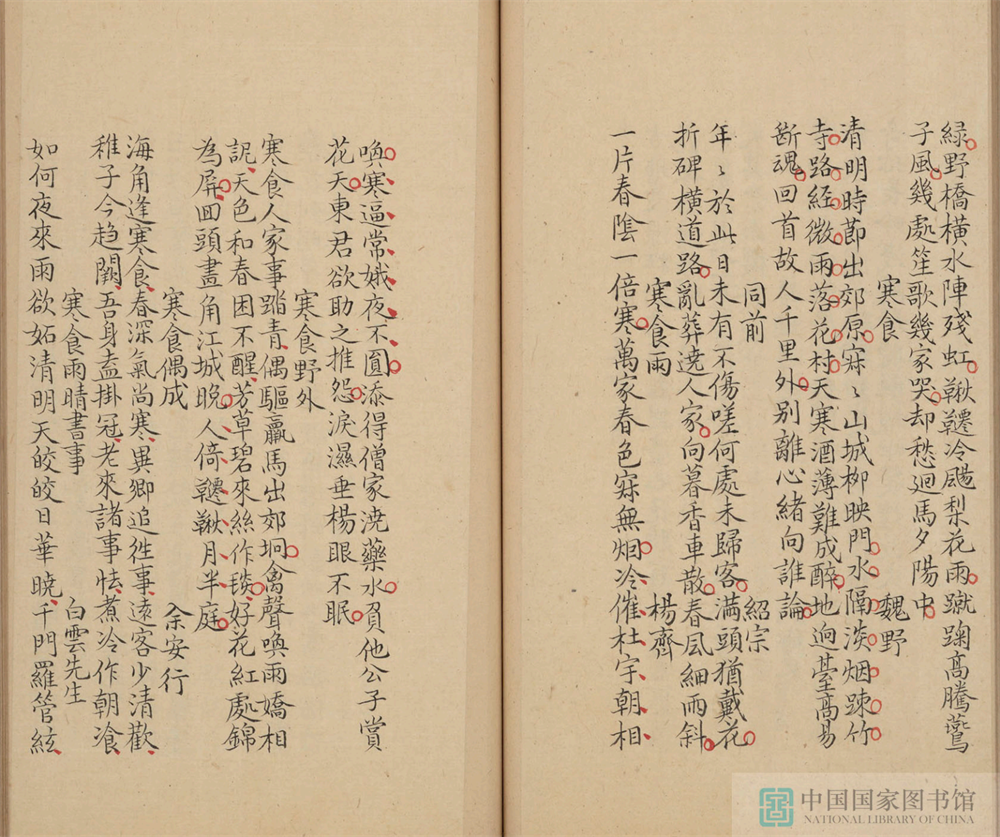 緑野橋橫水陣殘虹鞦韆冷颺梨花雨蹴踘髙騰鷰
子風幾處笙歌幾家哭却愁廻馬夕陽中
寒食 魏野
清明時節出郊原寂〻山城栁映門水隔淡烟踈竹
寺路經微雨落花村天寒酒薄難成醉地逈臺髙易
斷魂回首故人千里外别離心緒向誰論
同前 紹宗
年〻於此日未有不傷嗟何處未歸客滿頭猶戴花
折碑橫道路亂葬遶人家向暮香車散春風細雨斜
寒食雨 楊齊
一片春陰一倍寒萬家春色寂無烟冷催杜宇朝相
喚寒逼常娥夜不圓添得僧家澆藥水負他公子賞
花天東君欲助之推怨淚濕垂楊眼不眠
寒食野外
寒食人家事踏青偶驅羸馬出郊坰禽聲喚雨嬌相
誢天色和春困不醒芳草碧來絲作琰好花紅處錦
為屏回頭畫角江城晚人倚韆鞦月半庭
寒食偶成 余安行
海角逢寒食春深氣尚寒異鄉追徃事遠客少清歡
稚子今趋闕吾身盍掛冠老來諸事怯煮冷作朝飡
寒食雨晴書事 白雲先生
如何夜來雨欲妬清明天皎皎日華曉千門羅管絃
中国国家图书馆
NATIONAL LIBRARY OF CHINA